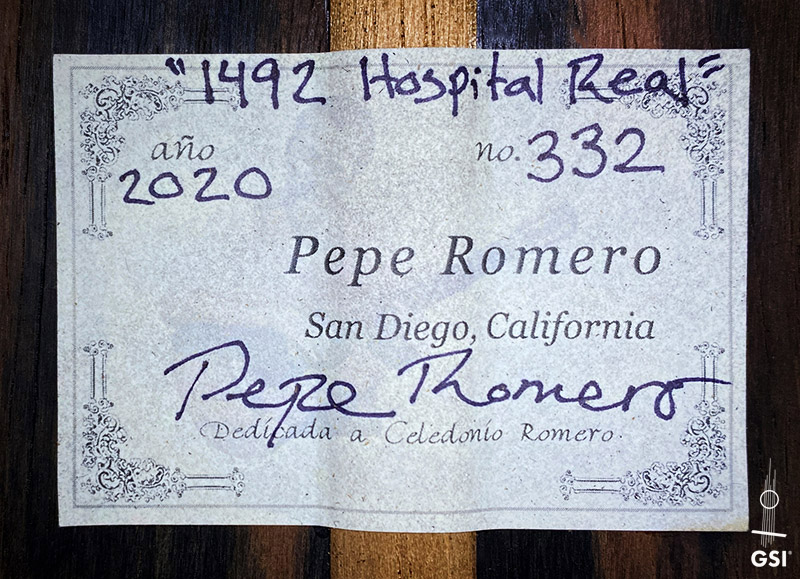 "1492 Hospital Real"
año
no. 332
2020
Pepe Romero
San Diego, California
Pepe Romero
Dedicada a Celedonio Romero
GSI